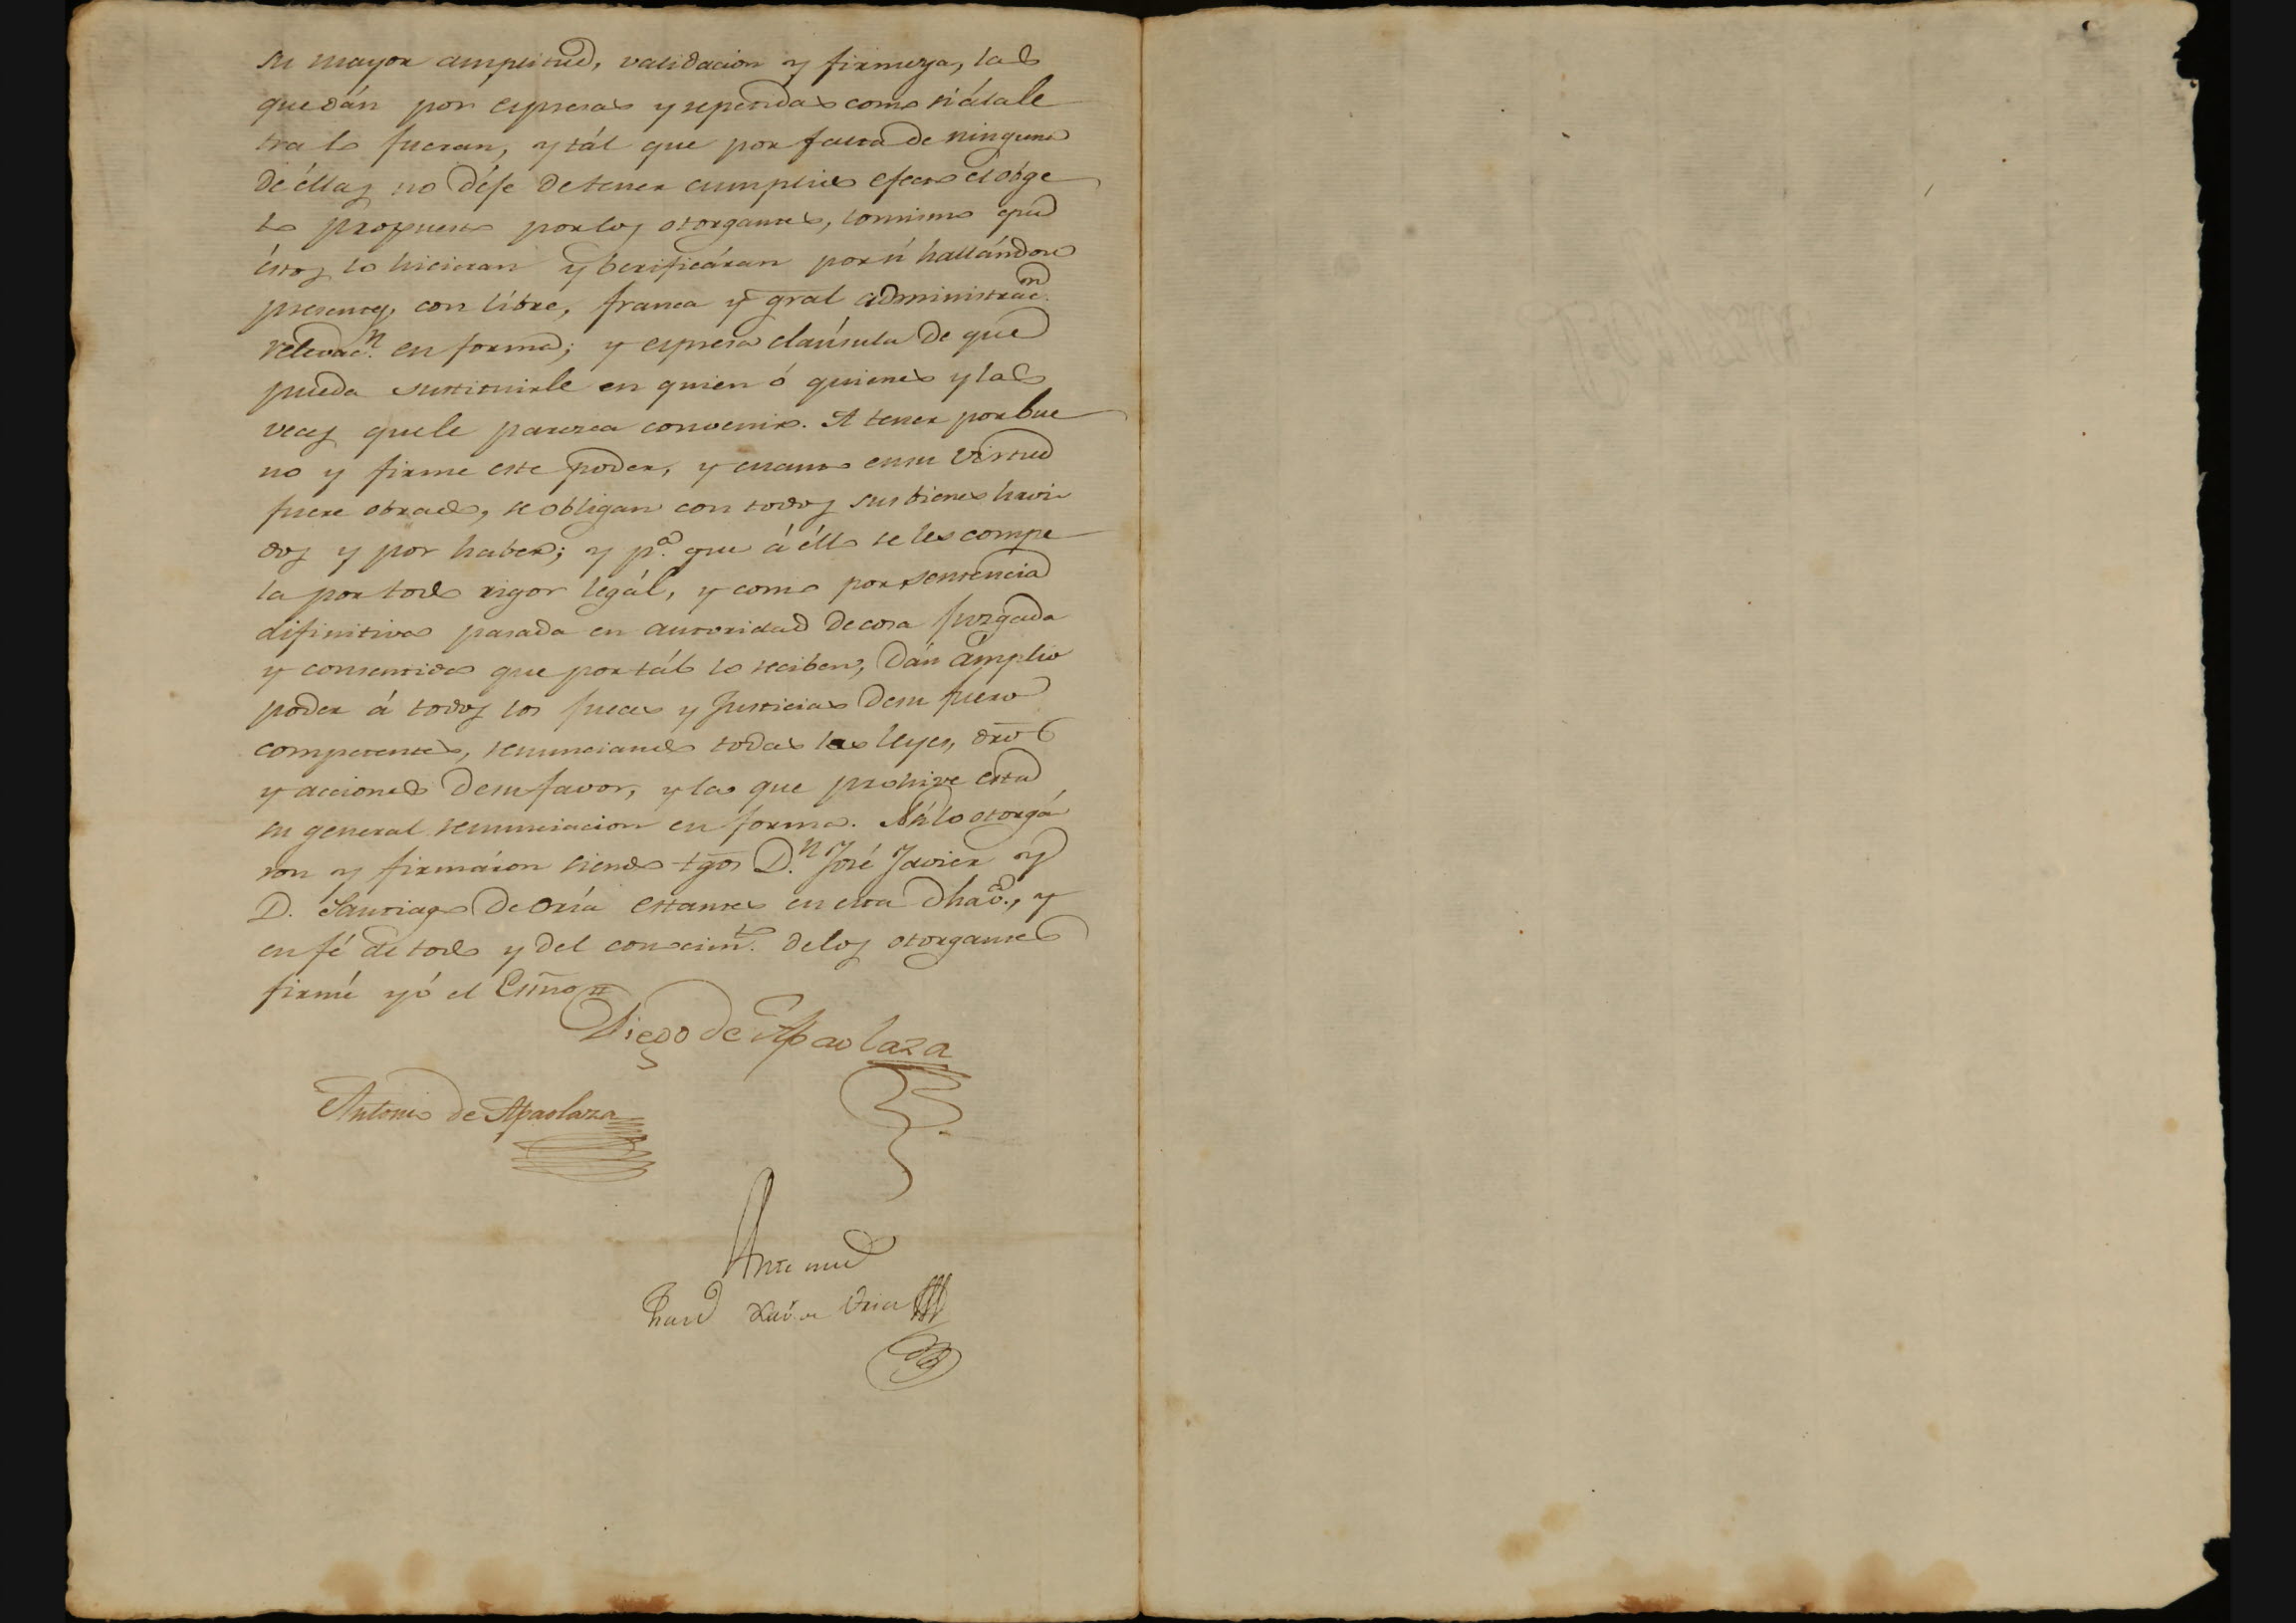 su mayor amplitud, validacion y firmeza, las
que dán por espresas y repetidas como si á la le
tra lo fueran, y tál que por falta de ninguna
de éllas no déje de tener cumplido efecto el obge
to propuesto por los otorgantes, lo mismo que
éstos lo hicieran y berificáran por sí hallándose
presentes, con libre, franca y gral administrac.n
relevac.n en forma; y espresa claúsula de que
pueda sustituirle en quien ó quienes y las
veces que le parezca convenir. A tener por bue
no y firme este poder, y cuanto en su virtud
fuere obrado, se obligan con todos sus bienes havi
dos y por haber; y p.a que á éllo se les compe
la por todo rigor legál, y como por sentencia
difinitiva pasada en autoridad de cosa juzgada
y consentida que por tál lo reciben, dán ámplio
poder á todos los jueces y Justicias de su fuero
competentes, renunciando todas las leyes, dros
y acciones de su favor, y la que prohive esta
su general renunciacion en forma. Así lo otorgá
ron y firmáron siendo tgos D.n José Javier y
D. Santiago de Oría estantes en esta dha v.a, y
en fé de todo y del conocim.to de los otorgantes
firmé yó el Essno
Diego de Apaolaza
Antonio de Apaolaza
Ante mi
Xavier Oria